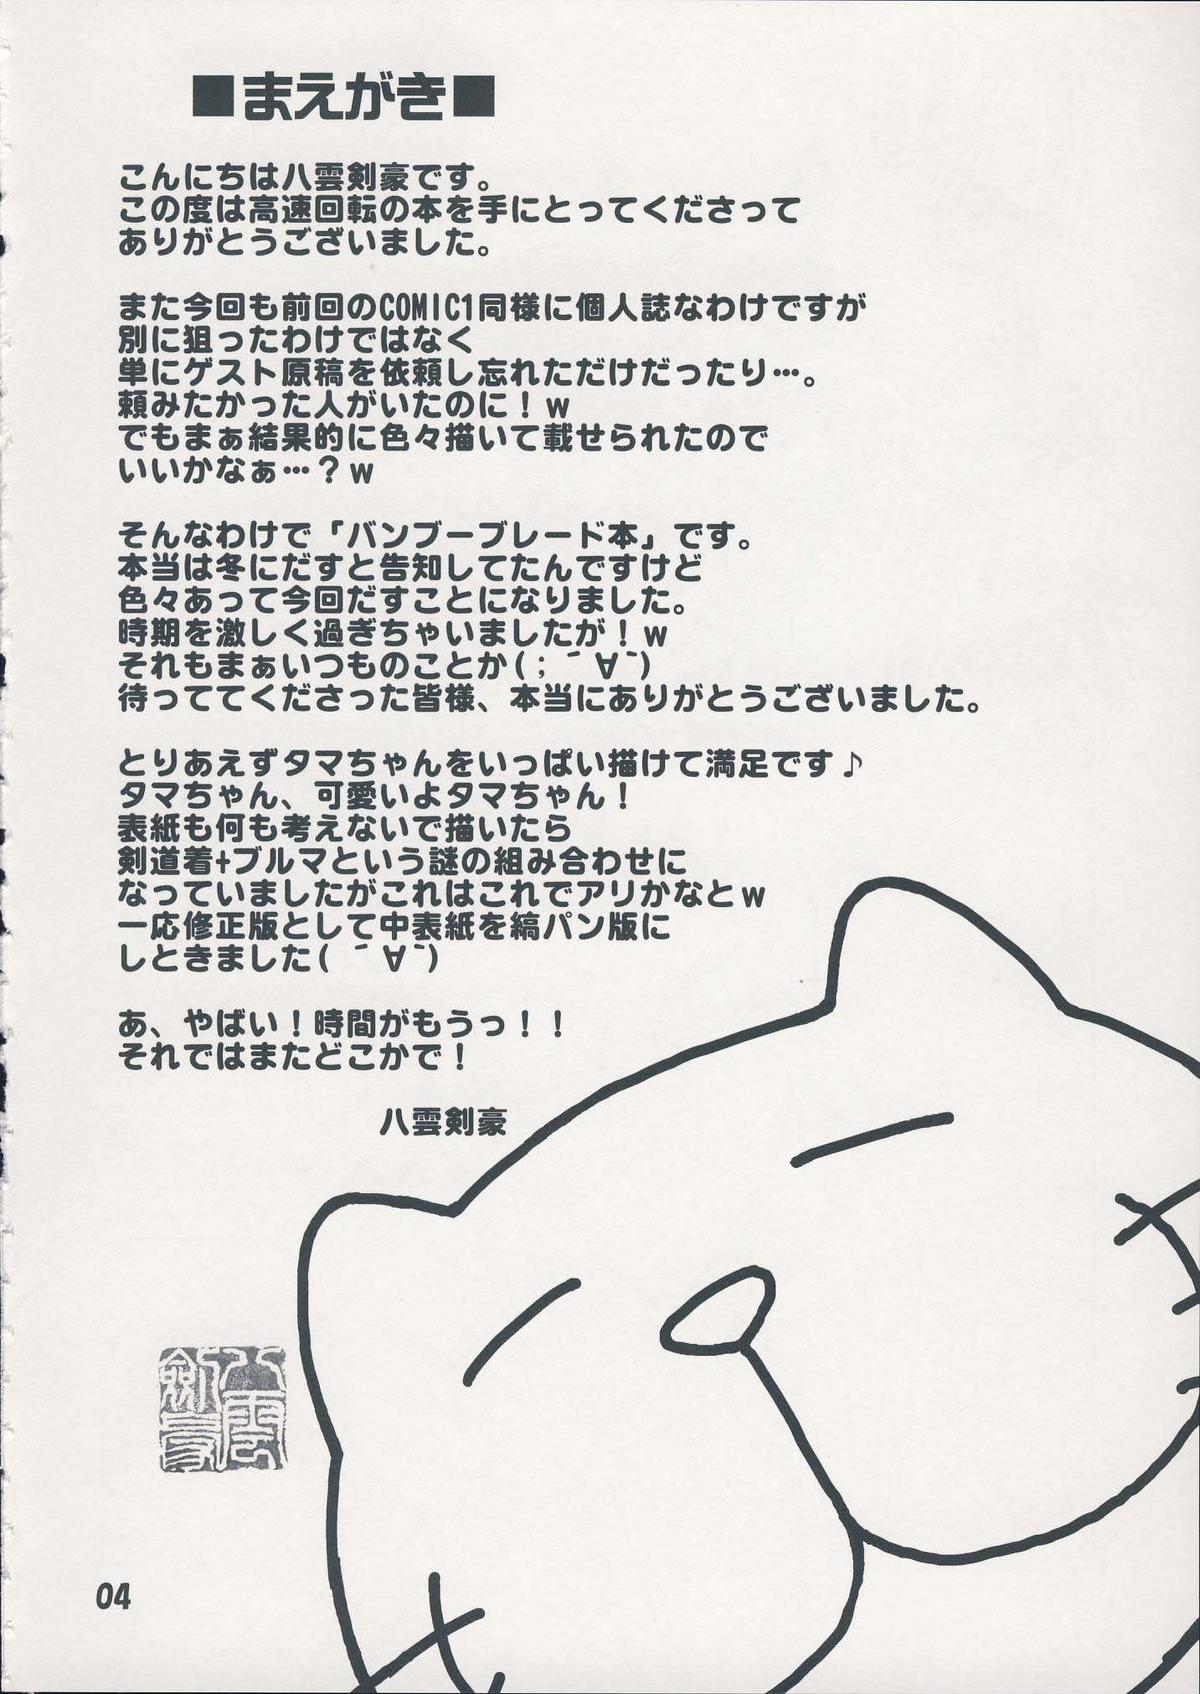 ■まえがき■
こんにちは八雲剣豪です。
この度は高速回転の本を手にとってくださって
ありがとうございました。
また今回も前回のCOMIC1同様に個人誌なわけですが
別に狙ったわけではなく
単にゲスト原稿を依頼し忘れただけだったり…。
頼みたかった人がいたのに！ｗ
でもまぁ結果的に色々描いて載せられたので
いいかなぁ…？ｗ
そんなわけで「バンブーブレード本」です。
本当は冬にだすと告知してたんですけど
色々あって今回だすことになりました。
時期を激しく過ぎちゃいましたが！ｗ
それもまぁいつものことか(；´∀`)
待っててくださった皆様、本当にありがとうございました。
とりあえずタマちゃんをいっぱい描けて満足です♪
タマちゃん、可愛いよタマちゃん！
表紙も何も考えないで描いたら
剣道着+ブルマという謎の組み合わせに
なっていましたがこれはこれでアリかなとｗ
一応修正版として中表紙を縞パン版に
しときました(´∀`)
あ、やばい！時間がもうっ！！
それではまたどこかで！
八雲剣豪
八雲
剣豪
04